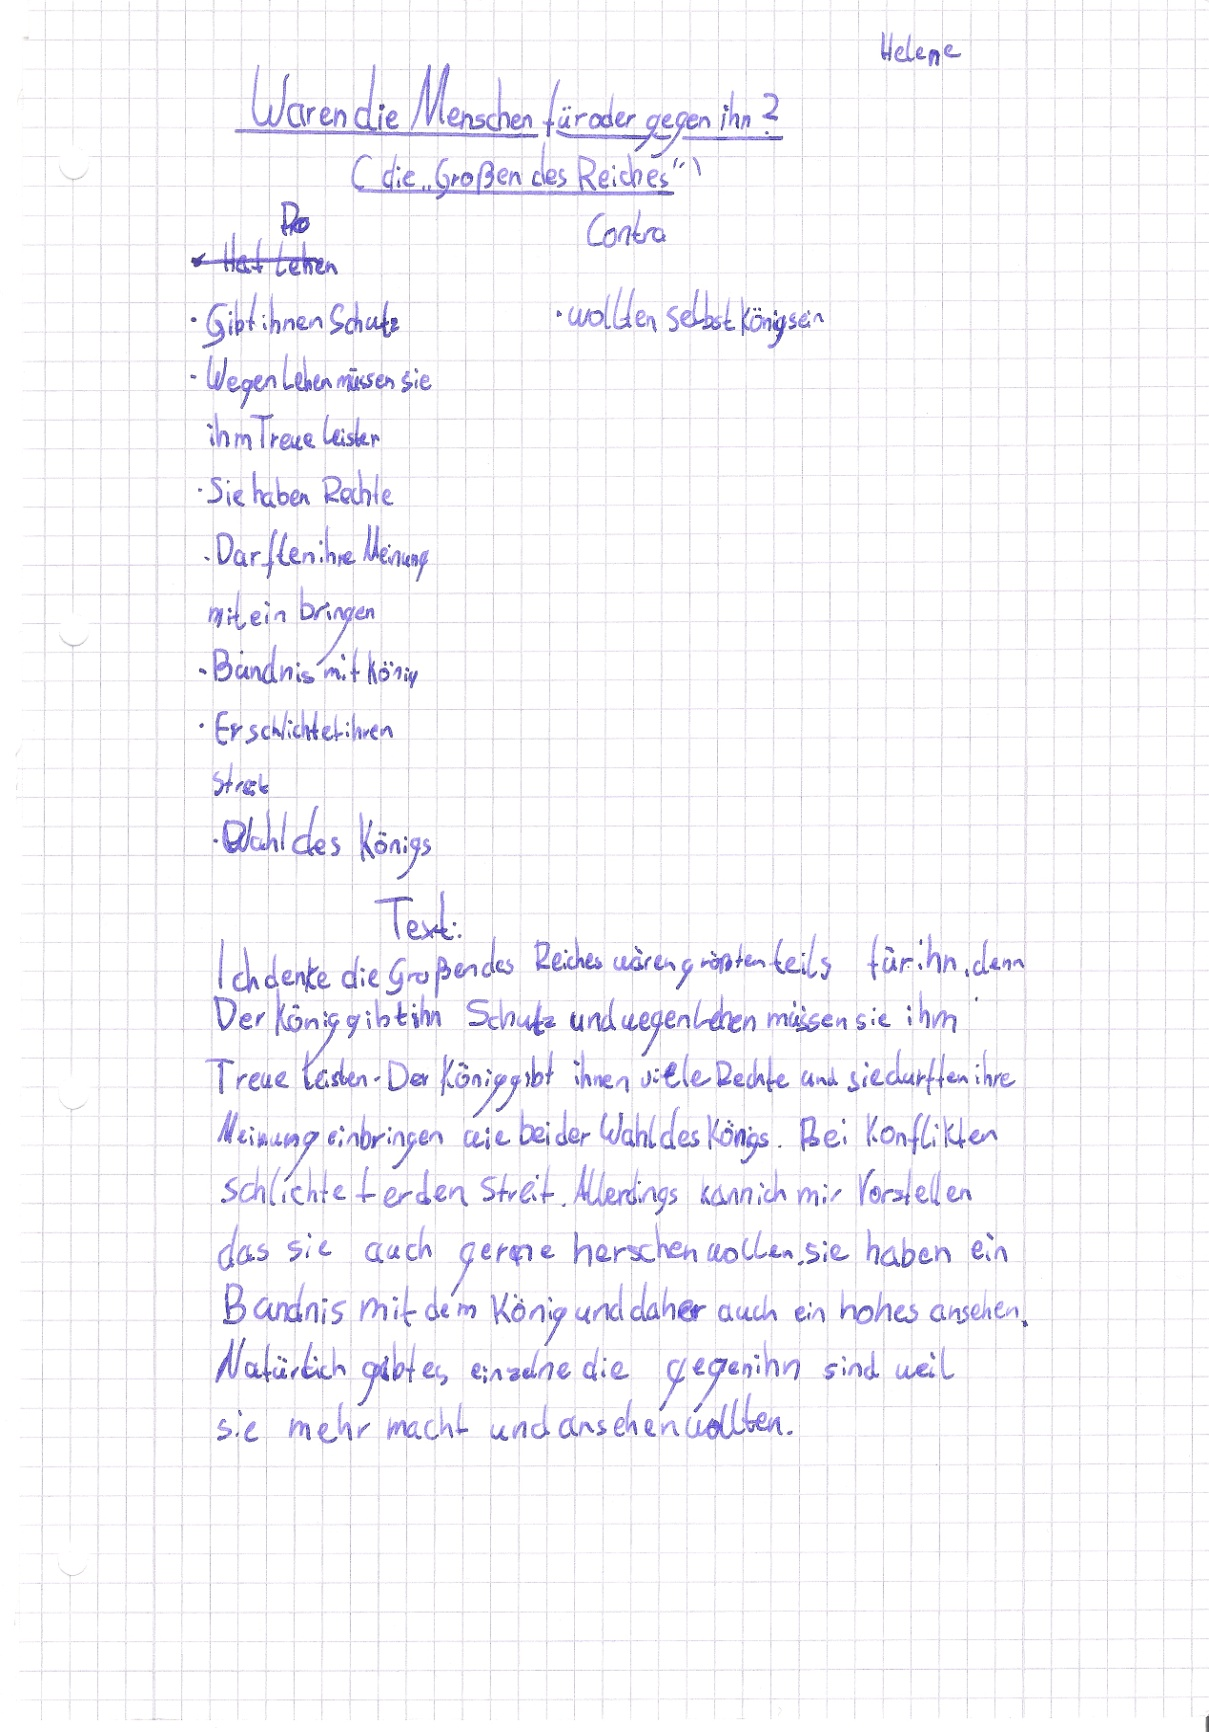 Helene
Waren die Menschen für oder gegen ihn?
(die „Großen des Reiches“)
Pro
Contra
Hat Lehen
· Gibt ihnen Schutz
· wollten selbst König sein
· Wegen Lehen müssen sie
ihm Treue leisten
· Sie haben Rechte
· Darften ihre Meinung
mit ein bringen
· Bündnis mit König
· Er schlichtet ihren
Streit
· Wahl des Königs
Text:
Ich denke die Großen des Reiches wären größtenteils für ihn, denn
Der König gibt ihn Schutz und wegen Lehen müssen sie ihm
Treue leisten. Der König gibt ihnen viele Rechte und sie durften ihre
Meinung einbringen wie bei der Wahl des Königs. Bei Konflikten
schlichtet er den Streit. Allerdings kann ich mir Vorstellen
das sie auch gerne herschen wollen. sie haben ein
Bündnis mit dem König und daher auch ein hohes ansehen.
Natürlich gibt es einzelne die gegen ihn sind weil
sie mehr macht und ansehen wollten.